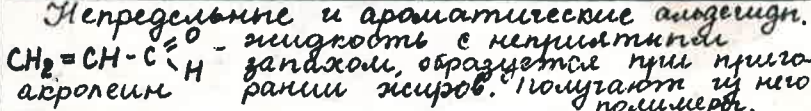 Непредельные и ароматические альдегиды.
CH₂=CH-C=O H - жидкость с неприятным
акролеин запахом, образуется при приго-
рании жиров. Получают из него
полимеры.